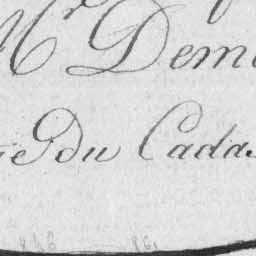 Mr Dem
du Cadas